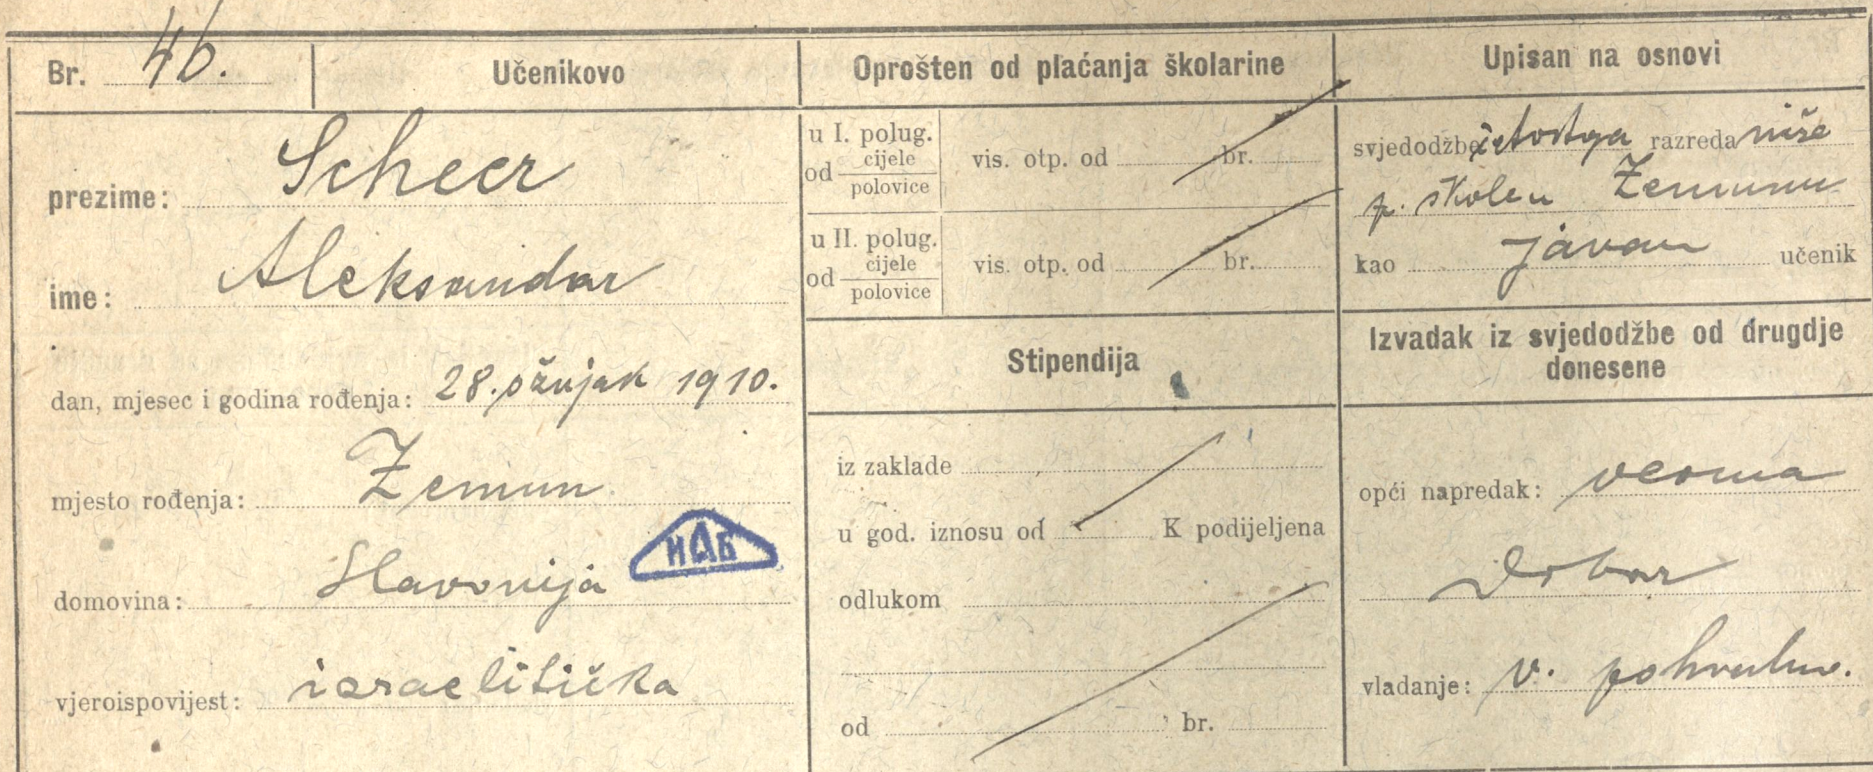 Br. 46.
Učenikovo
prezime: Scheer
ime: Aleksandar
dan, mjesec i godina rođenja: 28. ožujak 1910.
mjesto rođenja: Zemun
domovina: Slavonija
ИАБ
vjeroispovijest: izraelitička
Oprošten od plaćanja školarine
u I. polug.
od cijele
polovice
vis. otp. od br.
u II. polug.
od cijele
polovice
vis. otp. od br.
Stipendija
iz zaklade
u god. iznosu od K podijeljena
odlukom
od br.
Upisan na osnovi
svjedodžbe četvrtoga razreda niže
p. škole u Zemunu
kao javan učenik
Izvadak iz svjedodžbe od drugdje
donesene
opći napredak: veoma
dobar
vladanje: v. pohvalno.